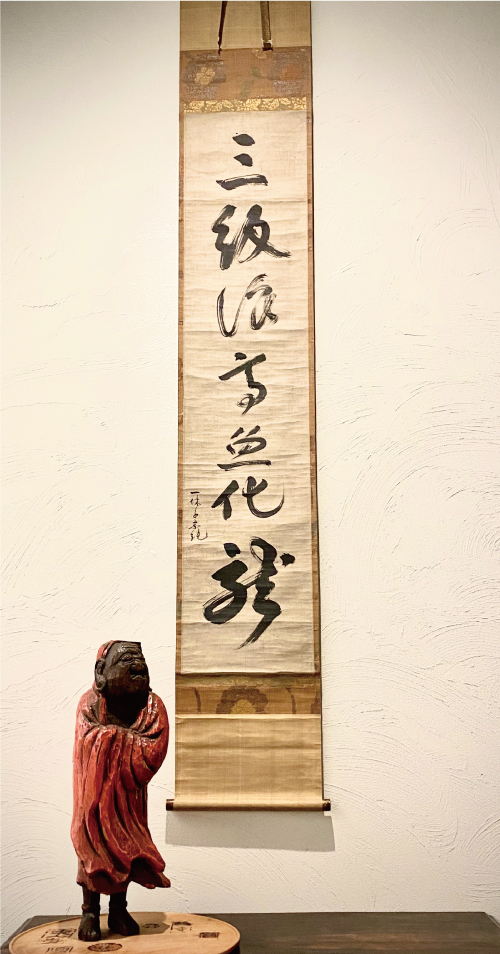 三級浪高魚化龍
一休子宗純